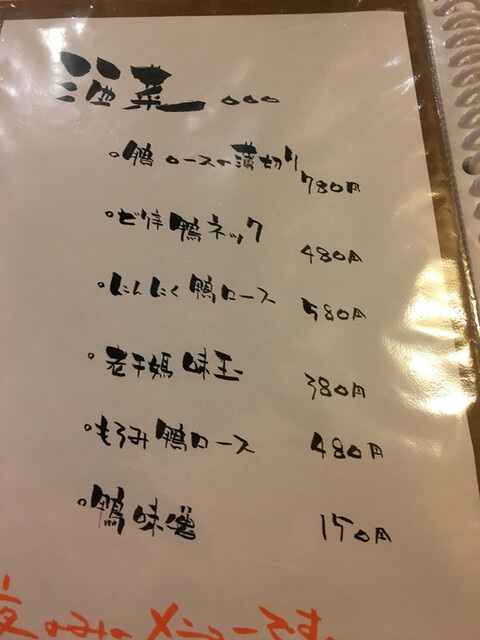 酒菜。。。
。鴨ロースの薄切り 780円
。ピ辛鴨ネック 480円
。にんにく鴨ロース 580円
。老干媽味玉 380円
。もろみ鴨ロース 480円
。鴨味噌 150円
夜のみのメニューです。